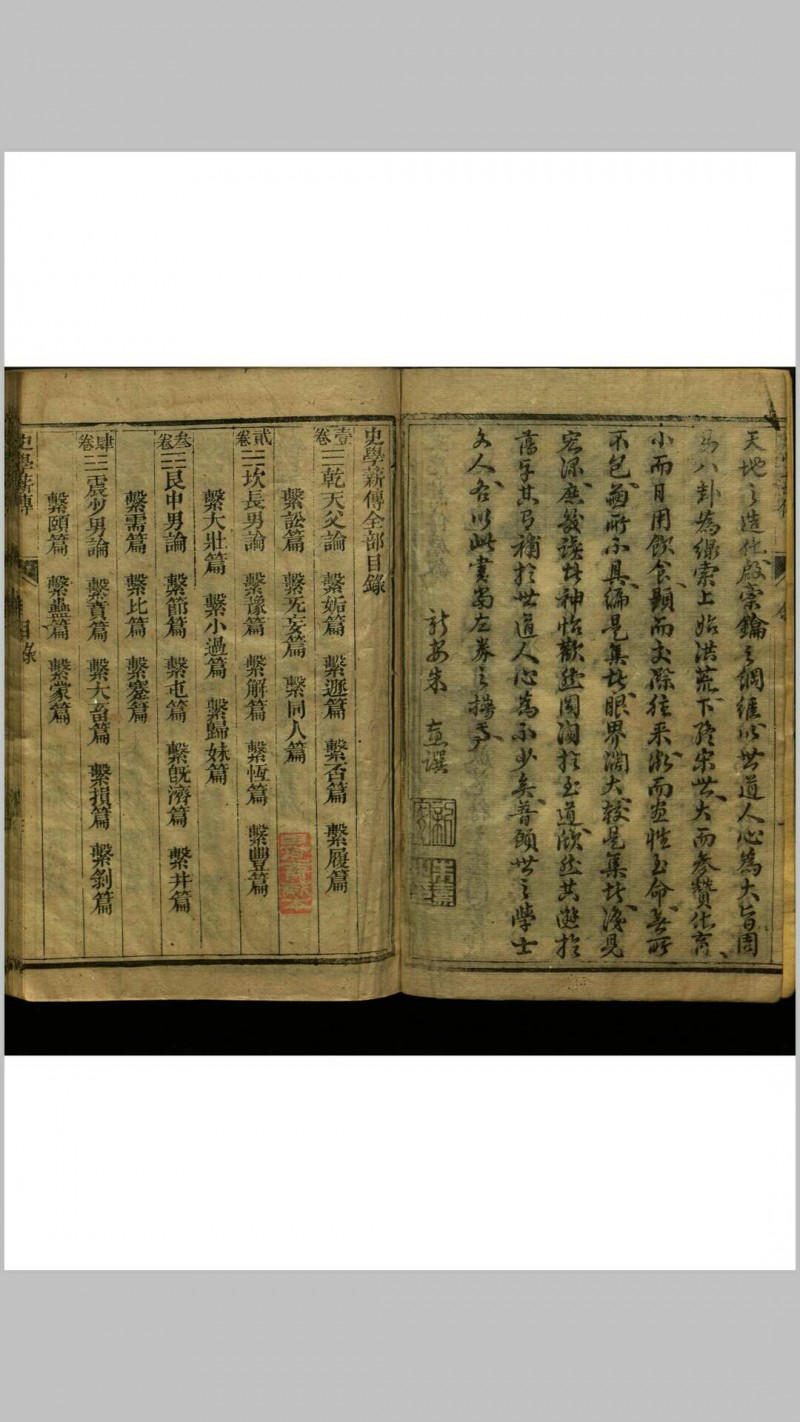 天地之造化啟宗鑰之綱維以世道人心為大旨因
八卦為線索上始洪荒下終宋世大而參贊化育
小而日用飲食顯而交際往來微而盡性至命無所
不包無所不具編是集者眼界濶大校是集者淺見
宏深庶幾讀者神怡歡然固淘於至道欣然共遊於
舊學其弓補於世道人心為不少矣普願世之學士
文人各以此書為左券之操
新安朱
史學薪傳全部目錄
壹卷☰乾天父論　繫姤篇　繫遯篇　繫否篇　繫履篇
繫訟篇　繫无妄篇　繫同人篇
貳卷坎長男論　繫豫篇　繫解篇　繫恆篇　繫豐篇
繫大壯篇　繫小過篇　繫歸妹篇
叁卷艮中男論　繫節篇　繫屯篇　繫旣濟篇　繫井篇
繫需篇　繫比篇　繫蹇篇
肆卷震少男論　繫賁篇　繫大畜篇　繫損篇　繫剝篇
繫頤篇　繫蠱篇　繫蒙篇
史學薪傳　目錄